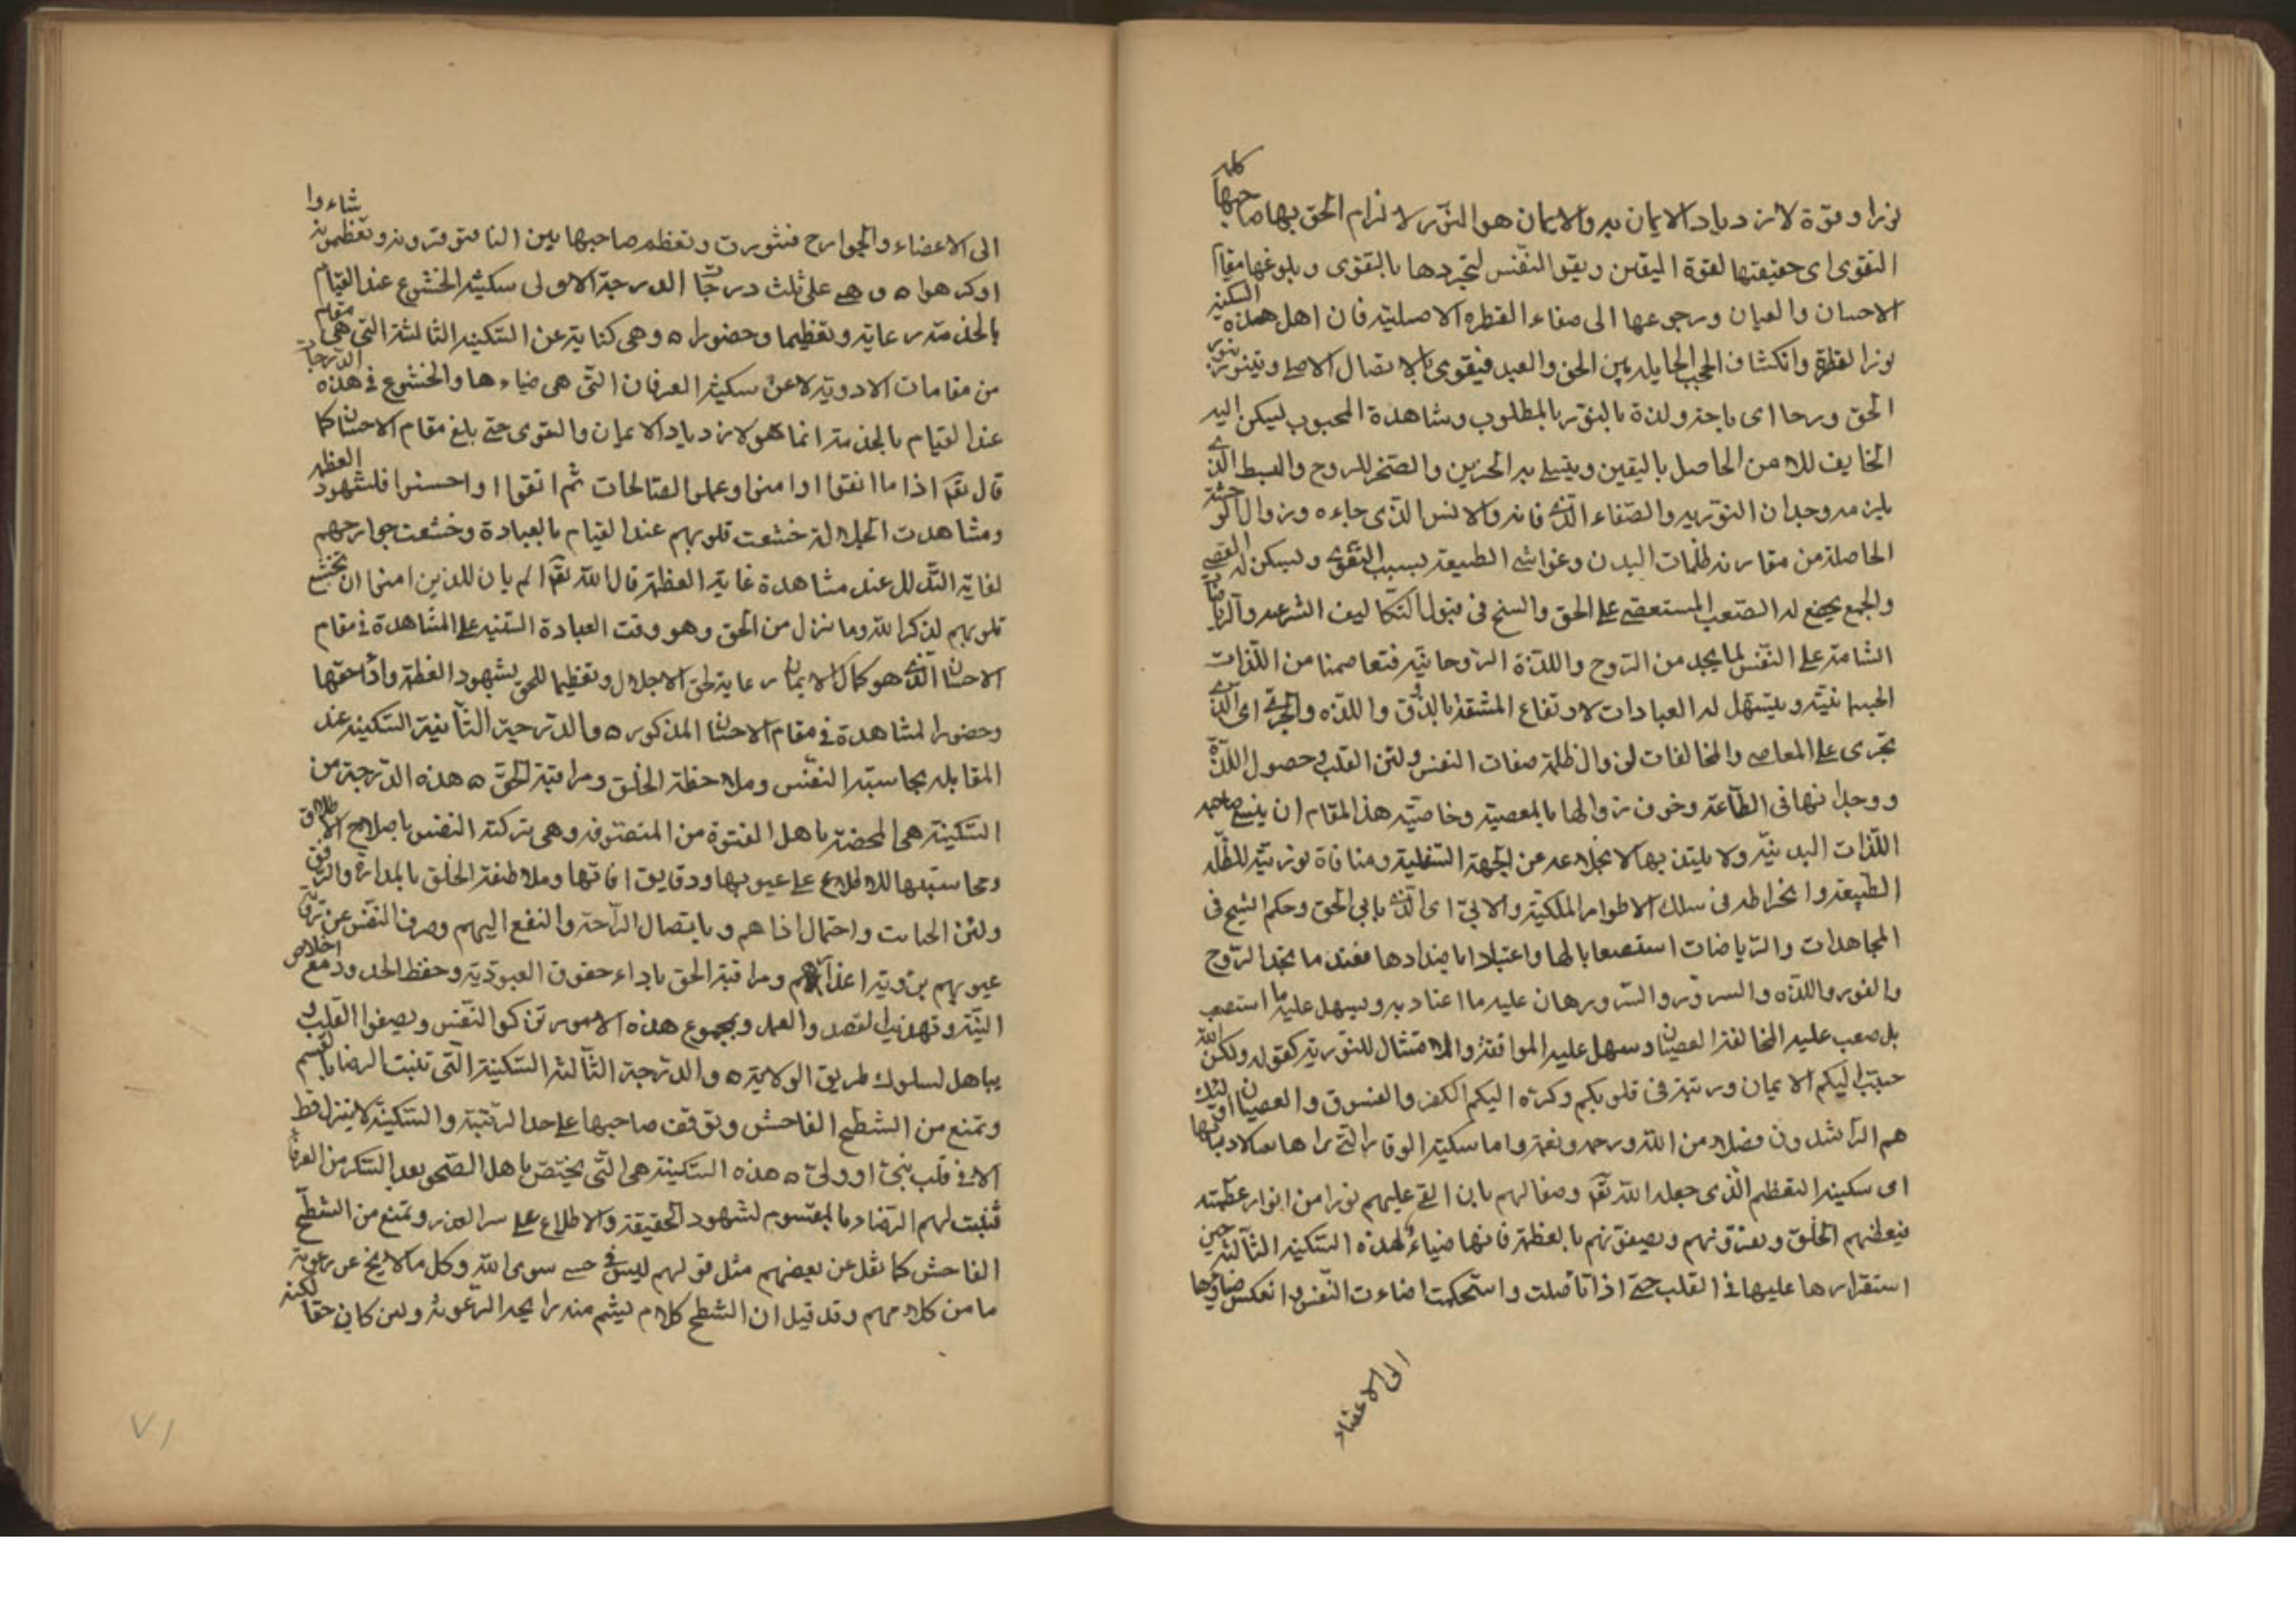 نورا وقوة لازدياد الايمان به والايمان هو النور لالزام الحق بها صاحبها كلمه
التقوى اى حقيقتها لقوة اليقين ويقو النفس لتجردها بالتقوى وبلوغها مقام
الاحسان والعيان ورجوعها الى صفاء الفطره الاصليه فان اهل هذه السكينه
نور الفطرة وانكشاف الحجب الحايله بين الحق والعبد فيقوى بالاتصال الاصلى ويتنور بنور
الحق وروحا اى راحة ولذة بالتنور بالمطلوب ومشاهدة المحبوب ليسكن اليه
الخايف للامن الحاصل باليقين ويتسلى به الحزين والضجر للروح والبسط الذى
يلزمه وجدان النوريه والصفاء الذى فاته والانس الذى جاءه وزوال الوحشة
الحاصلة من مقارنة ظلمات البدن وغواشى الطبيعة بسبب التقوى وليسكن له العصى
والجمع يخضع له الصعب المستعصى على الحق والسنح فى قبول التكاليف الشرعيه والرياضات
الشامة على النفس لما يجد من الروح واللذة الروحانيه فتعاصمنا من اللذات
الجسمانيته ويتسهل له العبادات لارتفاع المشقة بالذوق واللذه والجرى اى الذى
يجرى على المعاصى والمخالفات لزوال ظلمة صفات النفس ولين القلب وحصول اللذة
ووجدانها فى الطاعة وخوف زوالها بالمعصيه وخاصيه هذا المقام ان ينسى صاحبه
اللذات البدنيه ولا يلتذ بها لانخلاعه عن الجهة السفلية ومنافاة نوريته للظلمه
الطبيعه وانخراطه فى سلك الاطوار الملكيه والابى اى الذى يابى الحق وحكم الشيخ فى
المجاهدات والرياضات استصعابا لها واعتبادا باضدادها فعند ما يجد الروح
والنور واللذه والسرور والسرور هان عليه ما اعتاد به ويسهل عليه ما استصعب
بل صعب عليه المخالفة العصيان وسهل عليه الموافقة والامتثال للنوريه كقوله ولكن الله
حبب اليكم الايمان وزينه فى قلوبكم وكره اليكم الكفر والفسوق والعصيان اولئك
هم الراشدون فضلا من الله ورحمه ونعمة واما سكينة الوقار التى نزلها
اى سكينه التعظيم الذى جعله الله تعالى وصفا لهم بان القى عليهم نورا من انوار عظمته
فيعظمهم الخلق ويعزونهم ويصفونهم بالعظمة فانها ضياء لهذه السكينه الثالثه حين
استقرارها عليها فى القلب حتى اذا تاصلت واستحكمت اضاءت النفس وانعكس ضياؤها
الى الاعضاء
الى الاعضاء والجوارح فتنورت وتعظم صاحبها بين الناس فتوقرونه وتعظمونه شاءوا
او كرهوا ه وهى على ثلث درجات الدرجة الاولى سكينة الخشوع عند القيام
بالخدمة رعاية وتعظيما وحضورا ه وهى كناية عن السكينه الثالثة التى هى مقام
من مقامات الاودية لا عن سكينة العرفان التى هى ضياءها والخشوع فى هذه الدرجات
عند القيام بالخدمة انما هو لازدياد الايمان والتقوى حتى بلغ مقام الاحسان كما
قال تعالى اذا ما اتقوا وامنوا وعملوا الصالحات ثم اتقوا واحسنوا فلشهود العظمه
ومشاهدت الجلالة خشعت قلوبهم عند القيام بالعبادة وخشعت جوارحهم
لغاية التذلل عند مشاهدة غاية العظمة قال الله تعالى الم يان للذين امنوا ان تخشع
قلوبهم لذكر الله وما نزل من الحق وهو وقت العبادة المبنيه على المشاهدة فى مقام
الاحسان الذى هو كمال الايمان رعاية لحق الاجلال وتعظيما للحق بشهود العظمة واداء حقها
وحضورا لمشاهدة فى مقام الاحسان المذكوره والدرجة الثانية السكينه عند
المقابله بمحاسبة النفس وملاحظة الخلق ومراقبة الحق ه هذه الدرجة من
السكينة هى المختصة باهل الفتوة من المتصوفه وهى بتزكية النفس باصلاح الاخلاق
ومحاسبتها للاطلاع على عيوبها ودقايق افاتها وملاطفة الخلق بالمداراة والرفق
ولين الجانب واحتمال اذاهم وبايصال الراحة والنفع اليهم وصرف النفس عن رؤية
عيوبهم برؤية اعذارهم ومراقبة الحق باداء حقوق العبودية وحفظ الحدود مع اخلاص
النية وتهذيب القصد والعمل وبمجموع هذه الامور تزكوا النفس ويصفوا القلب
يباهل لسلوك طريق الولاية ه والدرجة الثالثة السكينة التى تثبت الرضا بالقسم
وتمنع من الشطح الفاحش وتوقف صاحبها على حد الرتبة والسكينة لا ينزل قط
الا فى قلب نبى او ولى ه هذه السكينة هى التى يختص باهل الصحو بعد السكر من العرفاء
فيثبت لهم الرضاء بالمقسوم لشهود الحقيقة والاطلاع على سر القدر وتمنع من الشطح
الفاحش كما نقل عن بعضهم مثل قولهم ليس فى جبتى سوى الله وكل ما لا يخ عن رعونة
ما من كلامهم وقد قيل ان الشطح كلام ليشم منه رايحه الرعونة ولين كان حقا لكنه
٧١